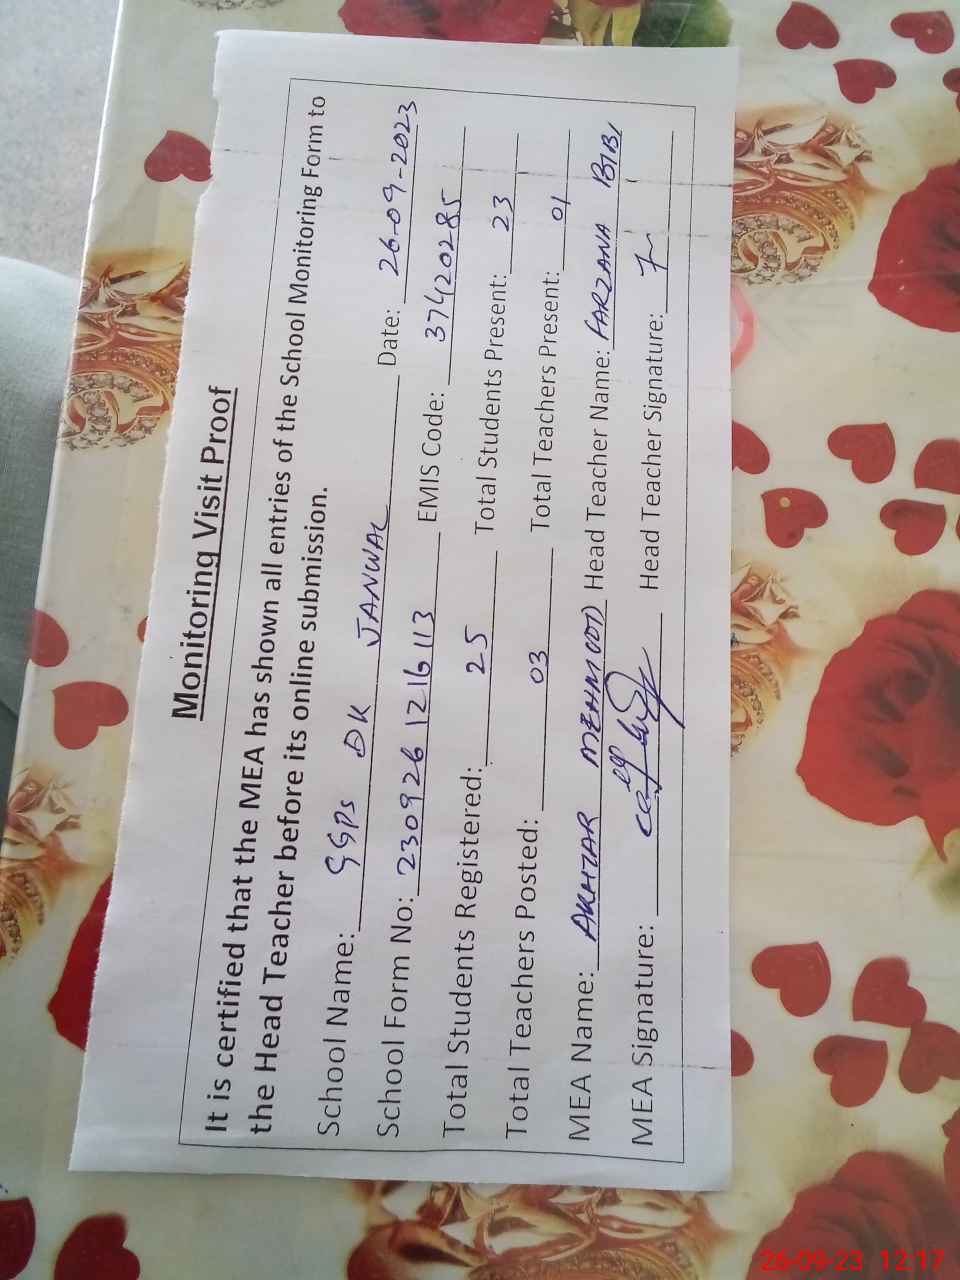 Monitoring Visit Proof
It is certified that the MEA has shown all entries of the School Monitoring Form to
the Head Teacher before its online submission.
School Name: GGPS DK JANWAL Date: 26-09-2023
School Form No: 2309261216113 EMIS Code: 37420285
Total Students Registered: 25 Total Students Present: 23
Total Teachers Posted: 03 Total Teachers Present: 01
MEA Name: AKHTAR MEHMOOD Head Teacher Name: FARZANA BIBI
MEA Signature: Head Teacher Signature:
26-09-23 12:17